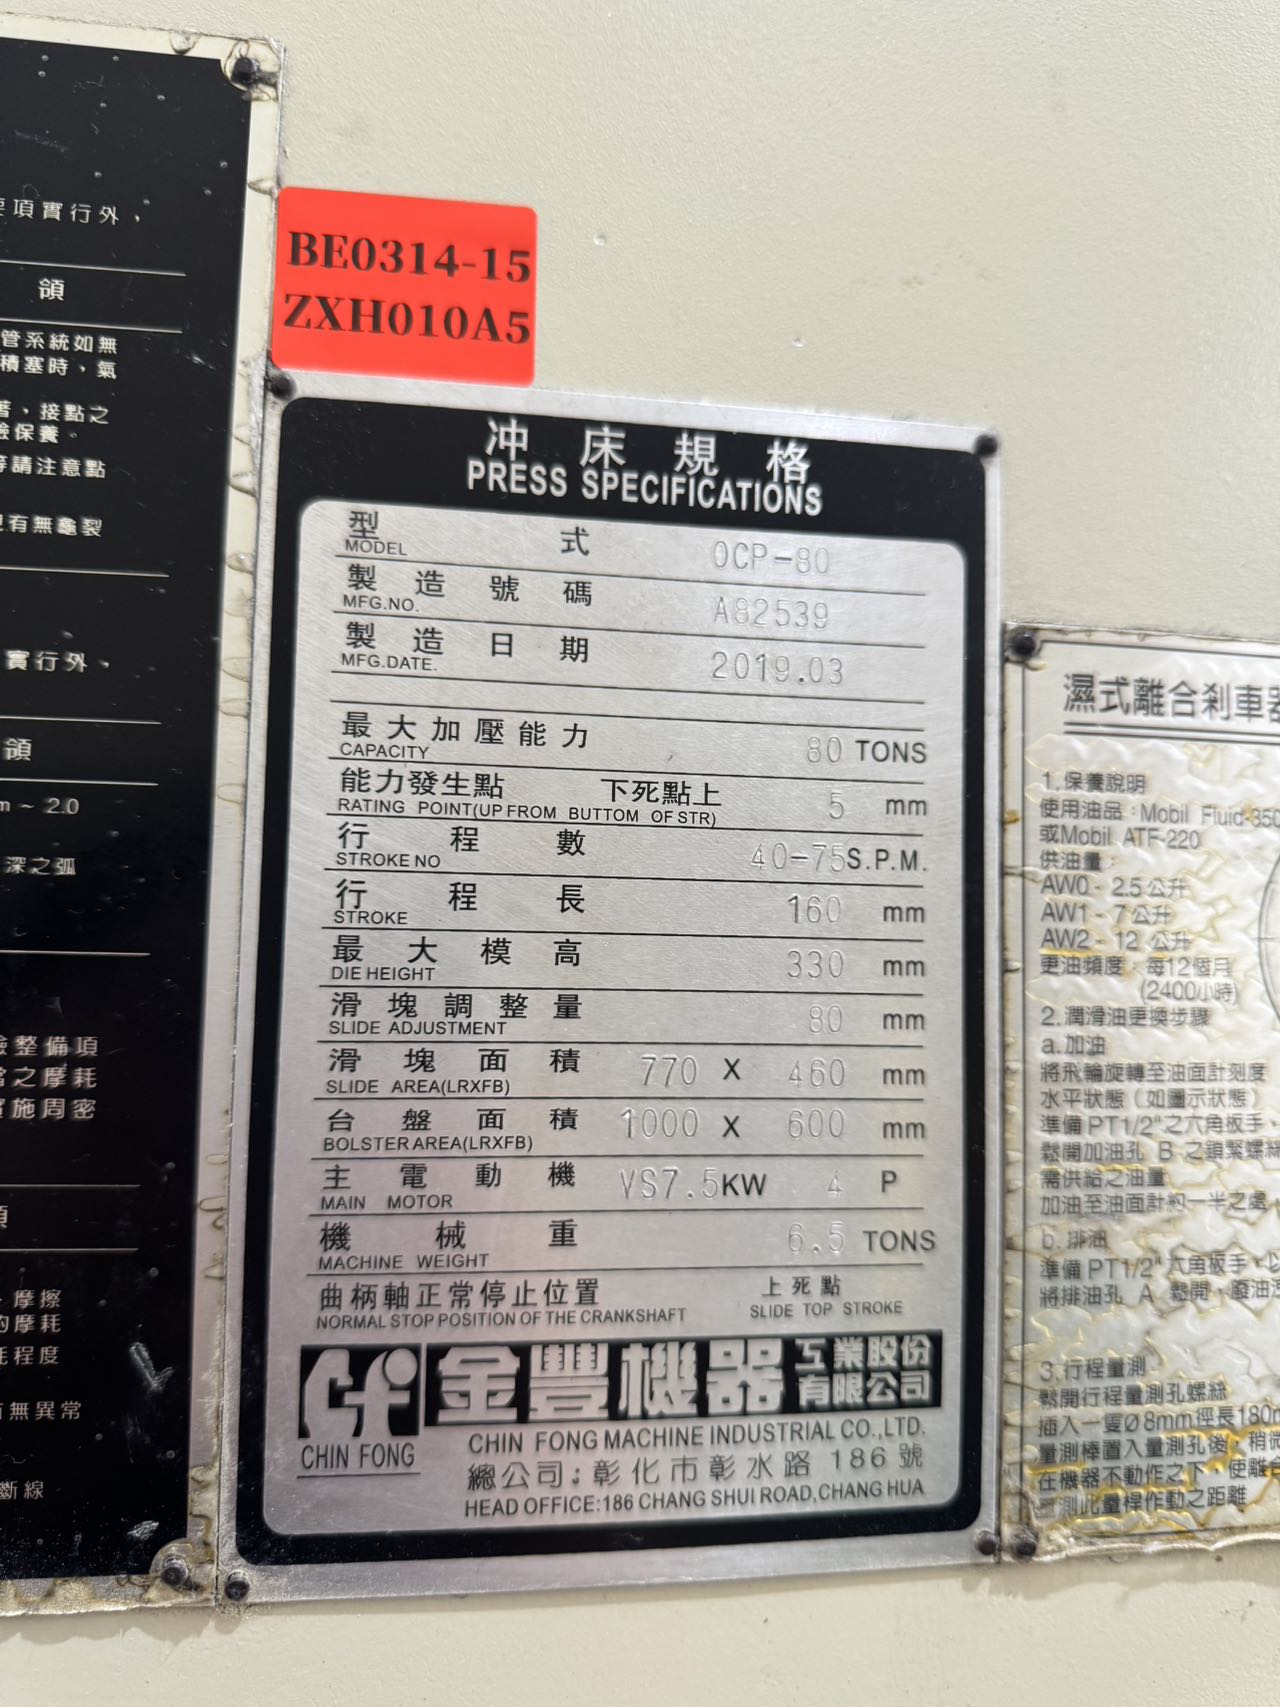 項實行外，
領
管系統如無
積塞時，氣
，接點之
保養。
請注意點
有無龜裂
實行外，
領
m ~ 2.0
深之弧
整備項
之摩耗
施周密
摩擦
的摩耗
耗程度
無異常
斷線
BE0314-15
ZXH010A5
冲床規格
PRESS SPECIFICATIONS
型式 OCP-80
MODEL
製造號碼 A82539
MFG.NO.
製造日期 2019.03
MFG.DATE.
最大加壓能力 80 TONS
CAPACITY
能力發生點 下死點上 5 mm
RATING POINT(UP FROM BUTTOM OF STR)
行程數 40-75 S.P.M.
STROKE NO
行程長 160 mm
STROKE
最大模高 330 mm
DIE HEIGHT
滑塊調整量 80 mm
SLIDE ADJUSTMENT
滑塊面積 770 X 460 mm
SLIDE AREA(LRXFB)
台盤面積 1000 X 600 mm
BOLSTER AREA(LRXFB)
主電動機 VS7.5KW 4 P
MAIN MOTOR
機械重 6.5 TONS
MACHINE WEIGHT
曲柄軸正常停止位置 上死點
NORMAL STOP POSITION OF THE CRANKSHAFT SLIDE TOP STROKE
金豐機器 工業股份有限公司
CHIN FONG
CHIN FONG MACHINE INDUSTRIAL CO.,LTD.
總公司:彰化市彰水路186號
HEAD OFFICE:186 CHANG SHUI ROAD,CHANG HUA
濕式離合剎車器
1.保養說明
使用油品：Mobil Fluid-350
或Mobil ATF-220
供油量：
AW0 - 2.5公升
AW1 - 7公升
AW2 - 12 公升
更油頻度：每12個月
(2400小時)
2.潤滑油更換步驟
a.加油
將飛輪旋轉至油面計刻度
水平狀態（如圖示狀態）
準備PT1/2"之六角板手，
鬆開加油孔 B 之鎖緊螺絲
需供給之油量
加油至油面計約一半之處，
b.排油
準備PT1/2"六角板手，以
將排油孔 A 鬆開，廢油
3.行程量測
鬆開行程量測孔螺絲
插入一隻Ø8mm徑長180m
量測棒置入量測孔後，稍微
在機器不動作之下，使離合
測此量桿作動之距離